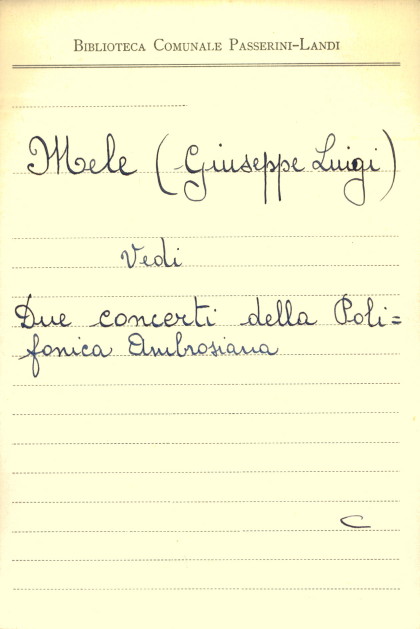 BIBLIOTECA COMUNALE PASSERINI-LANDI
Mele (Giuseppe Luigi)
Vedi
Due concerti della Poli=
fonica Ambrosiana
C